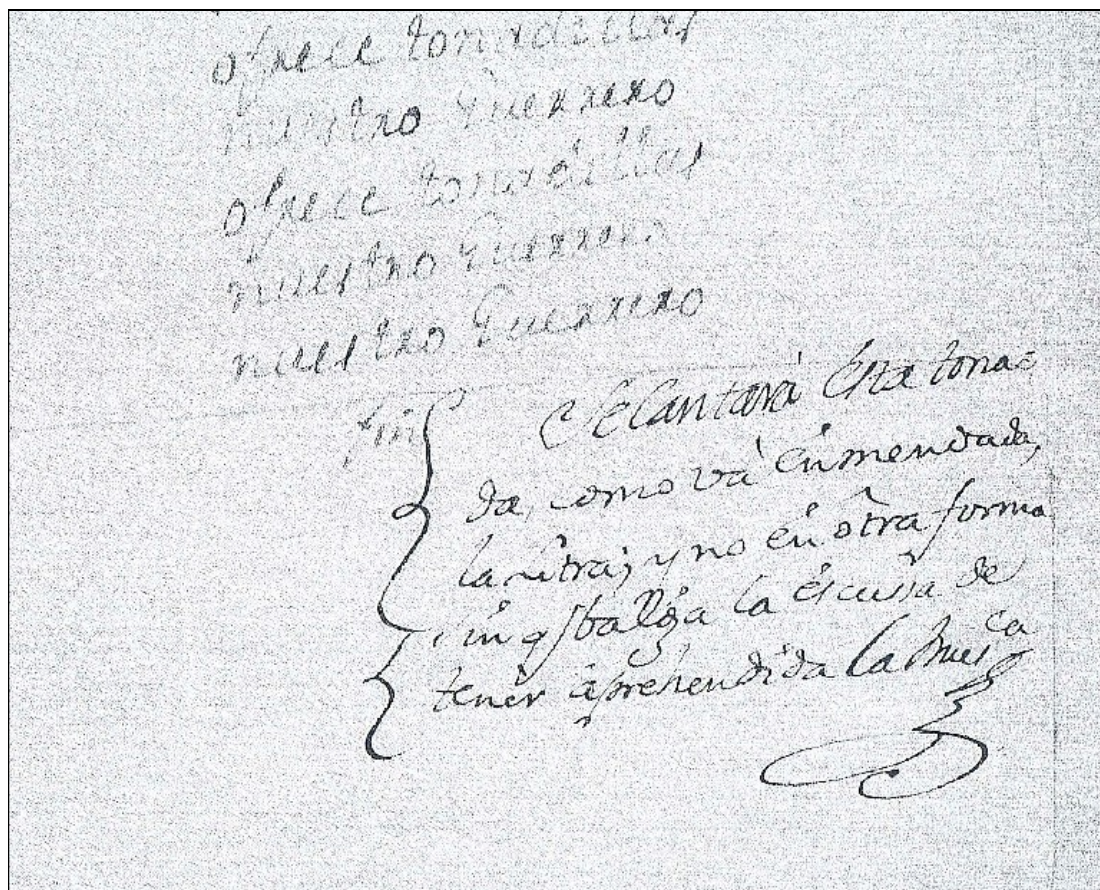 ofrece tonadillas
nuestro Guerrero
ofrece tonadillas
nuestro Guerrero
nuestro Guerrero
fin
Se Cantará ésta tona=
da, como vá énmendada,
la létra; y no én òtra forma
sin q balga la éscusa de
tenér áprehendida la Mus^ca